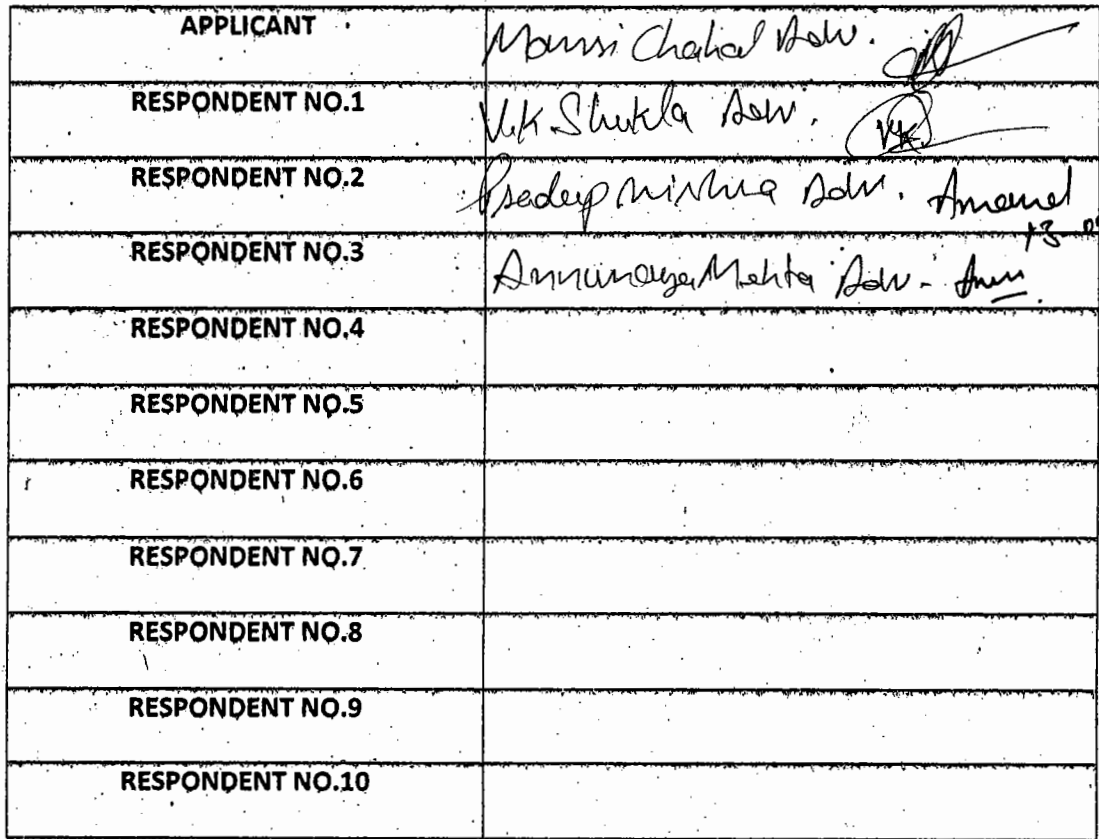 APPLICANT Mansi Chahal Adv.
RESPONDENT NO.1 V.K. Shukla Adv. VK
RESPONDENT NO.2 Pradeep Mishra Adv. Anand
RESPONDENT NO.3 Mehta Adv.
RESPONDENT NO.4
RESPONDENT NO.5
RESPONDENT NO.6
RESPONDENT NO.7
RESPONDENT NO.8
RESPONDENT NO.9
RESPONDENT NO.10